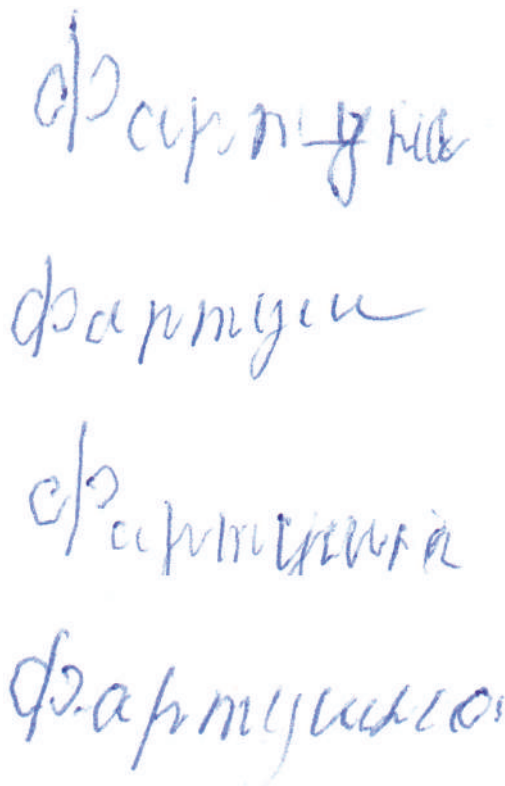 Фартуна
Фартуш
Фартушна
Фартушна